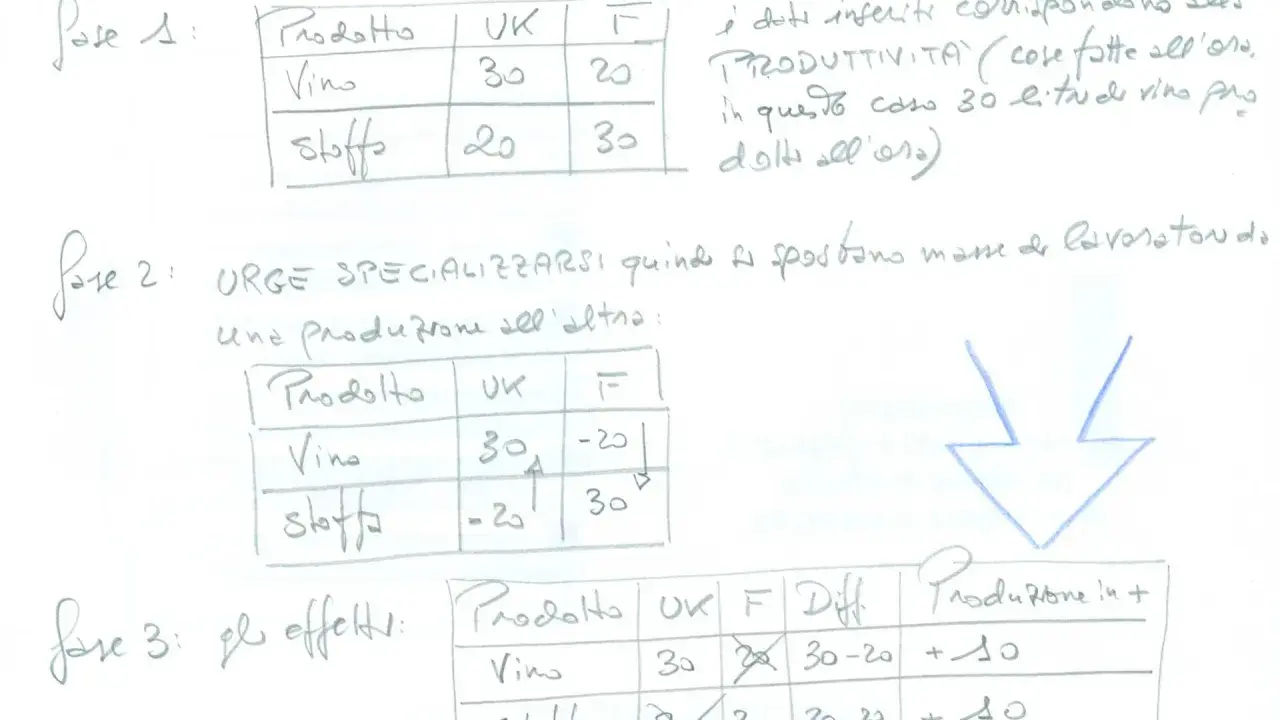 fase 1:
Prodotto UK F
Vino 30 20
Stoffa 20 30
i dati inseriti corrispondono alla
PRODUTTIVITÀ (cose fatte all'ora,
in questo caso 30 litri di vino pro
dotti all'ora)
fase 2: URGE SPECIALIZZARSI quindi si spostano masse di lavoratori da
una produzione all'altra:
Prodotto UK F
Vino 30 -20
Stoffa -20 30
fase 3: gli effetti:
Prodotto UK F Diff. Produzione in +
Vino 30 20 30-20 + 10
+ 10